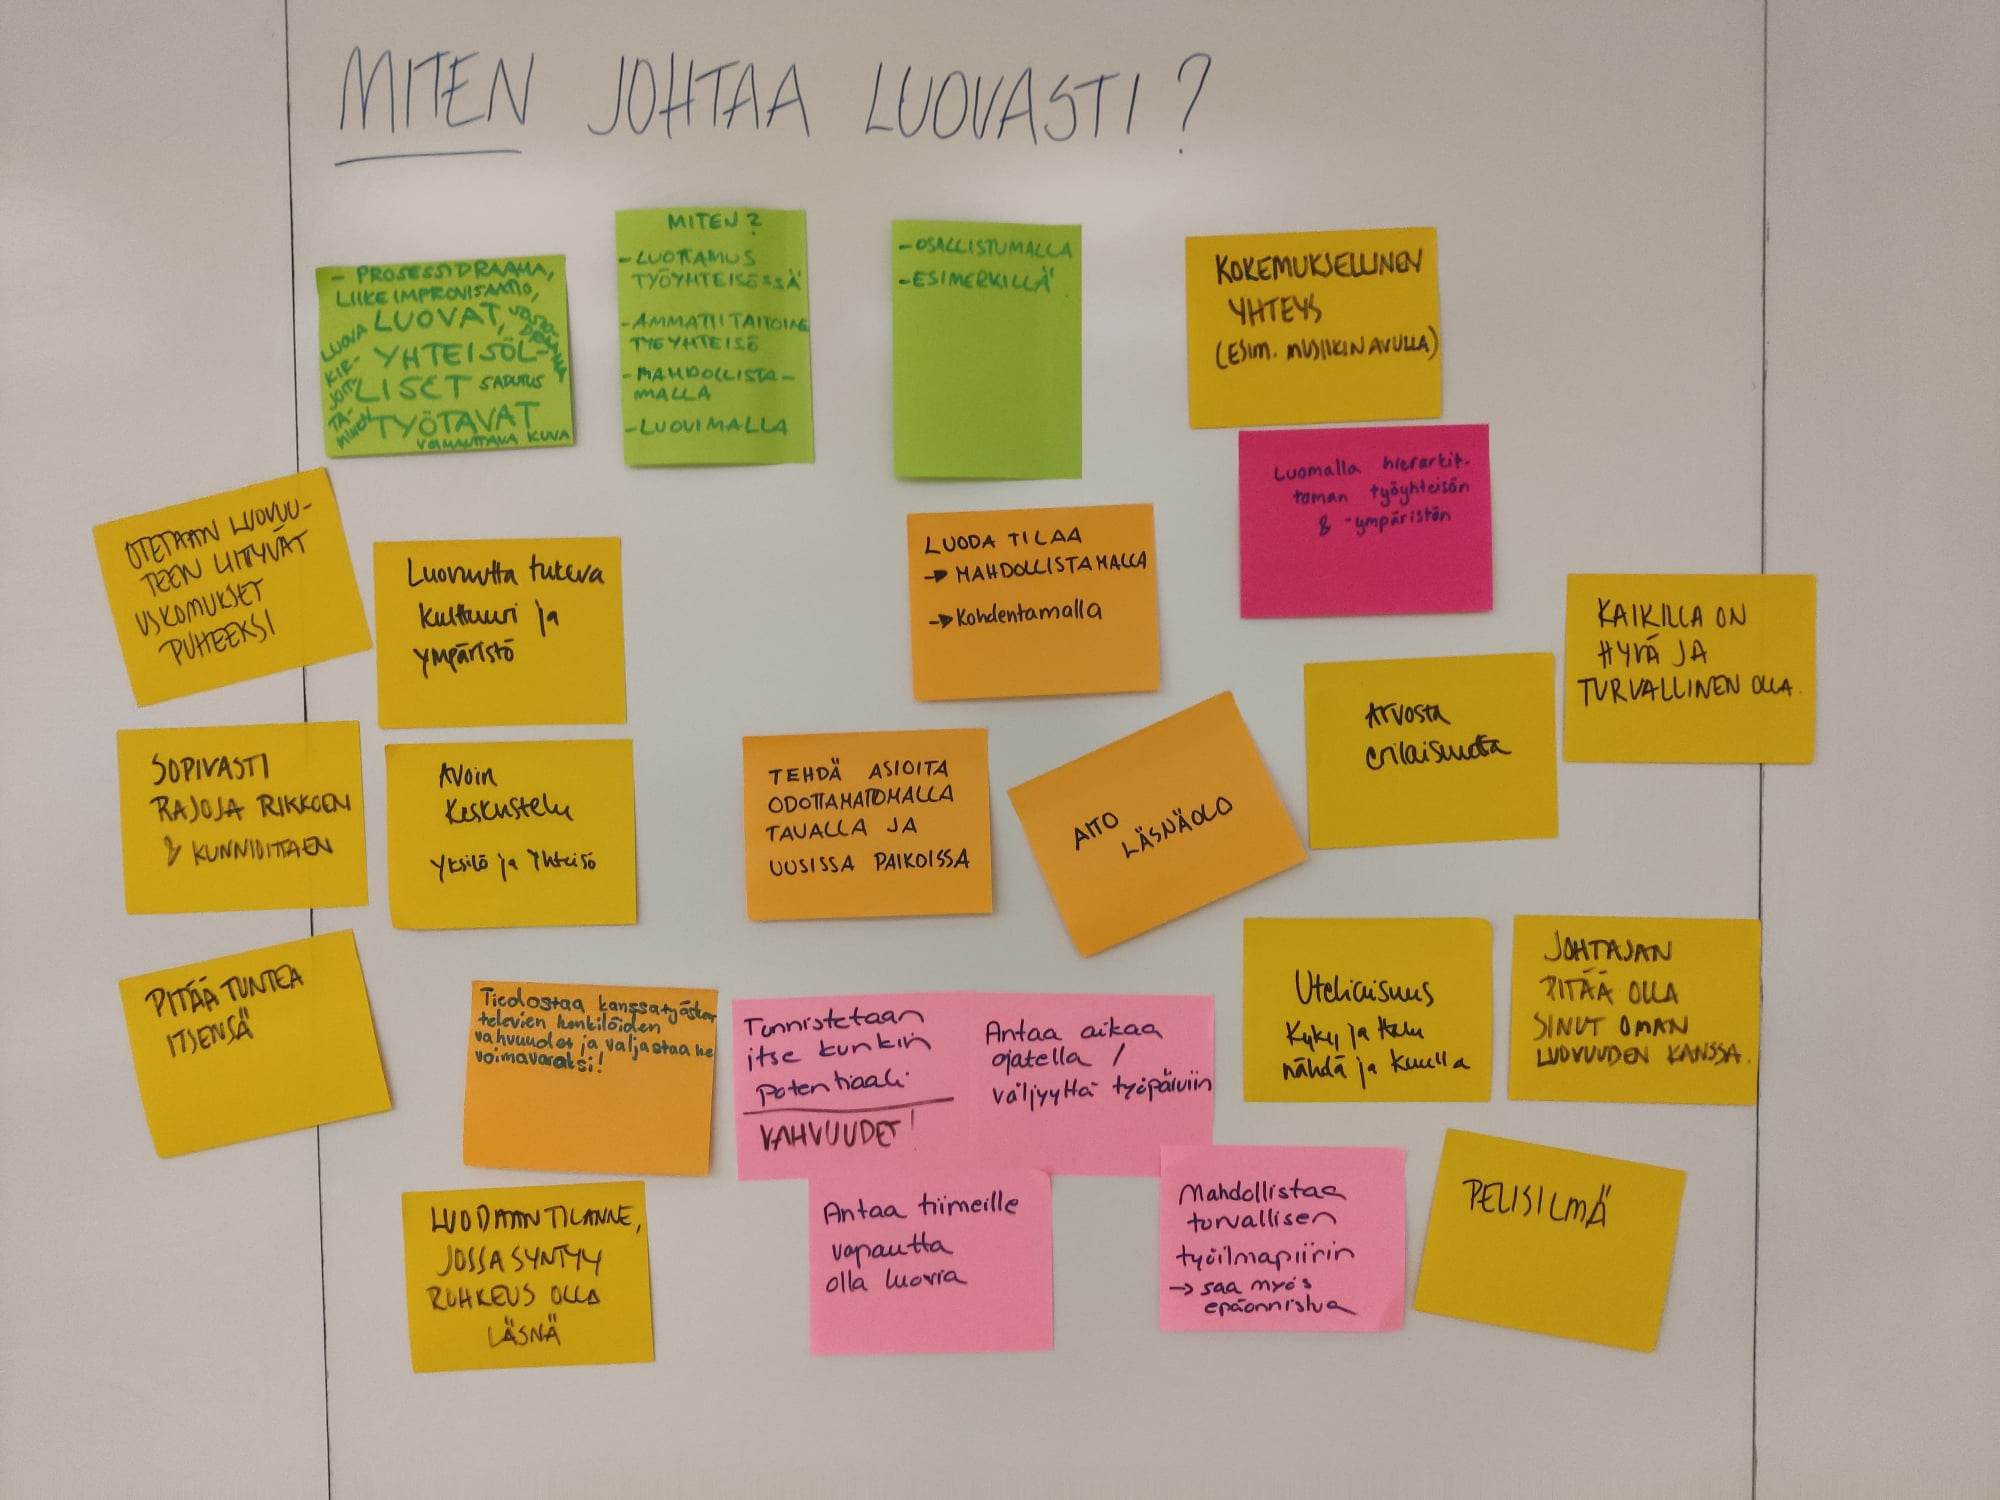 MITEN JOHTAA LUOVASTI?
- PROSESSIDRAAMA,
LIIKEIMPROVISAATIO,
LUOVAT,
YHTEISÖL-
LISET SADUTUS
TYÖTAVAT
VOIMAUTTAVA KUVA
LUOVA
KIR-
JOIT-
TA-
MINEN
MITEN?
- LUOTTAMUS
TYÖYHTEISÖSSÄ
- AMMATTITAITOINE
TYÖYHTEISÖ
- MAHDOLLISTA-
MALLA
- LUOVIMALLA
- OSALLISTUMALLA
- ESIMERKILLÄ
KOKEMUKSELLINEN
YHTEYS
(ESIM. MUSIIKIN AVULLA)
Luomalla hierarkit-
toman työyhteisön
& -ympäristön
OTETAAN LUOVUU-
TEEN LIITYVÄT
USKOMUKSET
PUHEEKSI
Luovuutta tukeva
kulttuuri ja
ympäristö
LUODA TILAA
→ MAHDOLLISTAMALLA
→ Kohdentamalla
KAIKILLA ON
HYVÄ JA
TURVALLINEN OLLA.
SOPIVASTI
RAJOJA RIKKOEN
& KUNNIOITTAEN
Avoin
keskustelu
Yksilö ja Yhteisö
TEHDÄ ASIOITA
ODOTTAMATTOMALLA
TAVALLA JA
UUSISSA PAIKOISSA
AITO
LÄSNÄOLO
Arvosta
erilaisuutta
PITÄÄ TUNTEA
ITSENSÄ
Tiedostaa kanssatyösken
televien henkilöiden
vahvuudet ja valjastaa ne
voimavaraksi!
Tunnistetaan
itse kunkin
potentiaali
VAHVUUDET!
Antaa aikaa
ajatella /
väljyyttä työpäiviin
Uteliaisuus
Kyky ja Halu
nähdä ja kuulla
JOHTAJAN
PITÄÄ OLLA
SINUT OMAN
LUOVUUDEN KANSSA.
LUODAAN TILANNE,
JOSSA SYNTYY
ROHKEUS OLLA
LÄSNÄ
Antaa tiimeille
vapautta
olla luovia
Mahdollistaa
turvallisen
työilmapiirin
→ saa myös
epäonnistua
PELISILMÄ